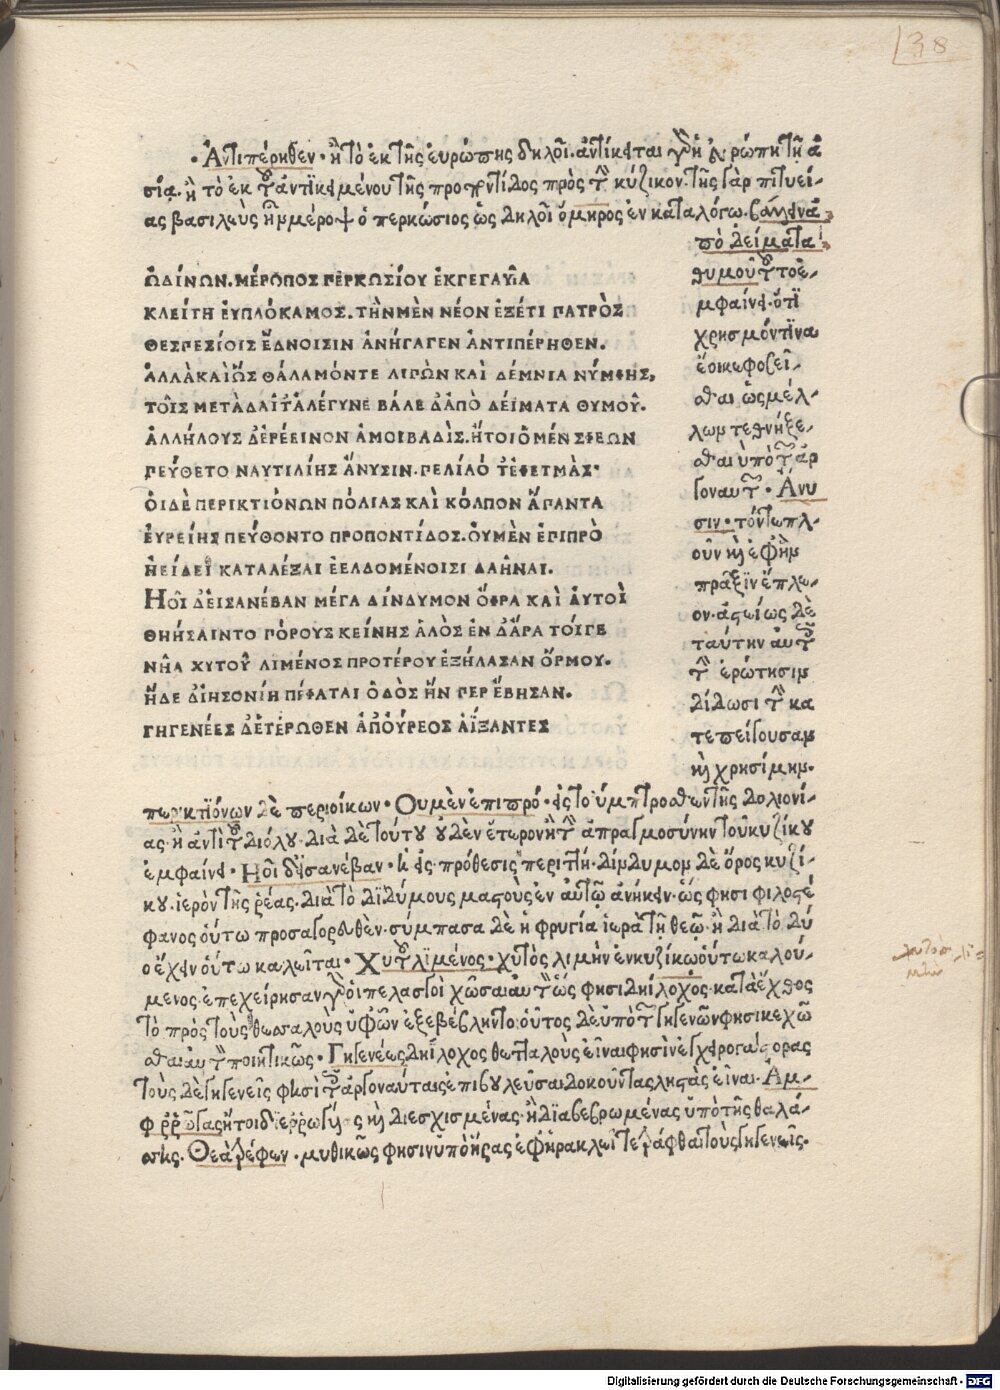 138
· Ἀντιπέρηθεν · ἢ τὸ ἐκ τῆς εὐρώπης δηλοῖ. ἀντίκειται γὰρ ἡ εὐρώπη τῇ ἀ
σίᾳ. ἢ τὸ ἐκ τοῦ ἀντικειμένου τῆς προποντίδος πρὸς τὴν κύζικον. τῆς γὰρ πιτυεί-
ας βασιλεὺς ἦν μέροψ ὁ περκώσιος ὡς δηλοῖ ὅμηρος ἐν καταλόγω. βάλεν ἀ
πὸ δείματα
ὨΔΙΝΩΝ. ΜΕΡΟΠΟΣ ΠΕΡΚΩΣΙΟΥ ἘΚΓΕΓΑΥΙΑ
ΚΛΕΙΤΗ ἘΥΠΛΟΚΑΜΟΣ. ΤῊΝ ΜῈΝ ΝΕΟΝ ἘΞΕΤΙ ΠΑΤΡῸΣ
ΘΕΣΠΕΣΙΟΙΣ ἝΔΝΟΙΣΙΝ ἈΝΗΓΑΓΕΝ ἈΝΤΙΠΕΡΗΘΕΝ.
ἈΛΛᾺ ΚΑῚ ὯΣ ΘΑΛΑΜΟΝ ΤΕ ΛΙΠῺΝ ΚΑῚ ΔΕΜΝΙΑ ΝΥΜΦΗΣ,
ΤΟΙΣ ΜΕΤΑ ΔΑΙΤ' ἈΛΕΓΥΝΕ ΒΑΛΕ Δ' ἈΠῸ ΔΕΙΜΑΤΑ ΘΥΜΟΥ.
ἈΛΛΗΛΟΥΣ Δ' ἘΡΕΕΙΝΟΝ ἈΜΟΙΒΑΔΙΣ. ἬΤΟΙ Ὁ ΜΕΝ ΣΦΕΩΝ
ΠΕΥΘΕΤΟ ΝΑΥΤΙΛΙΗΣ ἌΝΥΣΙΝ. ΠΕΛΙΑΟ Τ' ἘΦΕΤΜΑΣ·
ὉΙ ΔῈ ΠΕΡΙΚΤΙΟΝΩΝ ΠΟΛΙΑΣ ΚΑῚ ΚΟΛΠΟΝ ἍΠΑΝΤΑ
ἘΥΡΕΙΗΣ ΠΕΥΘΟΝΤΟ ΠΡΟΠΟΝΤΙΔΟΣ. ὈΥ ΜῈΝ ἘΠΙΠΡῸ
ἨΕΙΔΕΙ ΚΑΤΑΛΕΞΑΙ ἘΕΛΔΟΜΕΝΟΙΣΙ ΔΑΗΝΑΙ.
ἨΟΙ Δ' ΕἸΣΑΝΕΒΑΝ ΜΕΓΑ ΔΙΝΔΥΜΟΝ ὌΦΡΑ ΚΑῚ ἈΥΤΟῚ
ΘΗΗΣΑΙΝΤΟ ΠΟΡΟΥΣ ΚΕΙΝΗΣ ἉΛΟΣ ἘΝ Δ' ἌΡΑ ΤΟΙΓΕ
ΝΗΑ ΧΥΤΟΥ ΛΙΜΕΝΟΣ ΠΡΟΤΕΡΟΥ ἘΞΗΛΑΣΑΝ ὍΡΜΟΥ.
ἭΔΕ Δ' ἸΗΣΟΝΙΗ ΠΕΦΑΤΑΙ ὉΔΟΣ ἪΝ ΠΕΡ ἜΒΗΣΑΝ.
ΓΗΓΕΝΕΕΣ Δ' ἘΤΕΡΩΘΕΝ ἈΠ' ΟΥΡΕΟΣ ἈΙΞΑΝΤΕΣ
θυμοῦ τοῦτο ἐ-
μφαίνει. ὅτι
χρησμόν τινα
ἔοικε φοβεῖ-
σθαι ὡς μέλ-
λων τεθνήξε-
σθαι ὑπὸ τῶν ἀρ
γοναυτῶν · Ἄνυ
σιν · τὸν πλ-
οῦν καὶ ἐφ' ἣν
πρᾶξιν ἔπλε-
ον. ἀστείως δὲ
ταύτην αὐτῶν
τὴν ἐρώτησιν
δίδωσι τὴν κα
τεπείγουσαν
καὶ χρησίμην.
περικτιόνων δὲ περιοίκων · Ου μὲν ἐπιπρό · εἰς τὸ ὔμπροσθεν τῆς δολιονί-
ας. ἢ ἀντὶ τοῦ διόλου. διὰ δὲ τούτου οὐδὲν ἕτερον ἢ τὴν ἀπραγμοσύνην τοῦ κυζίκου
ἐμφαίνει · Ηοῖ δ' εἰσανέβαν · ἡ εἰς πρόθεσις περιττή. δίνδυμον δὲ ὄρος κυζί-
κου. ἱερὸν τῆς ῥέας. διὰ τὸ διδύμους μαστοὺς ἐν αὐτῷ ἀνήκειν. ὥς φησι φιλοστέ
φανος οὕτω προσαγορευθὲν. σύμπασα δὲ ἡ φρυγία ἱερὰ τῇ θεῷ. ἢ διὰ τὸ δύ
ο ἔχειν οὕτω καλεῖται · Χυτοῦ λιμένος · χυτὸς λιμὴν ἐν κυζίκω οὕτω καλού-
μενος. ἐπεχείρησαν γὰρ οἱ πελασγοὶ χῶσαι αὐτὸν ὥς φησι δηίλοχος. κατὰ ἔχθος
τὸ πρὸς τοὺς θεσσαλοὺς ὑφ' ὧν ἐξεβέβληντο. οὗτος δὲ ὑπὸ τῶν γηγενῶν φησι κεχῶ
σθαι αὐτὸν ποιητικῶς · Γηγενέες δηίλοχος θετταλοὺς εἶναι φησὶν ἐγχειρογάστορας
τοὺς δὲ γηγενεῖς φησὶ τοῖς ἀργοναύταις ἐπιβουλεῦσαι δοκοῦντας ληστὰς εἶναι. Ἀμ-
φιρρῶγας ἤτοι διερρωγυίας καὶ διεσχισμένας. ἢ διαβεβρωμένας ὑπὸ τῆς θαλά-
σσης. Θεὰ τρέφεν · μυθικῶς φησιν ὑπὸ ἥρας ἐφ' ἡρακλεῖ τετράφθαι τοὺς γηγενεῖς.
Digitalisierung gefördert durch die Deutsche Forschungsgemeinschaft - DFG